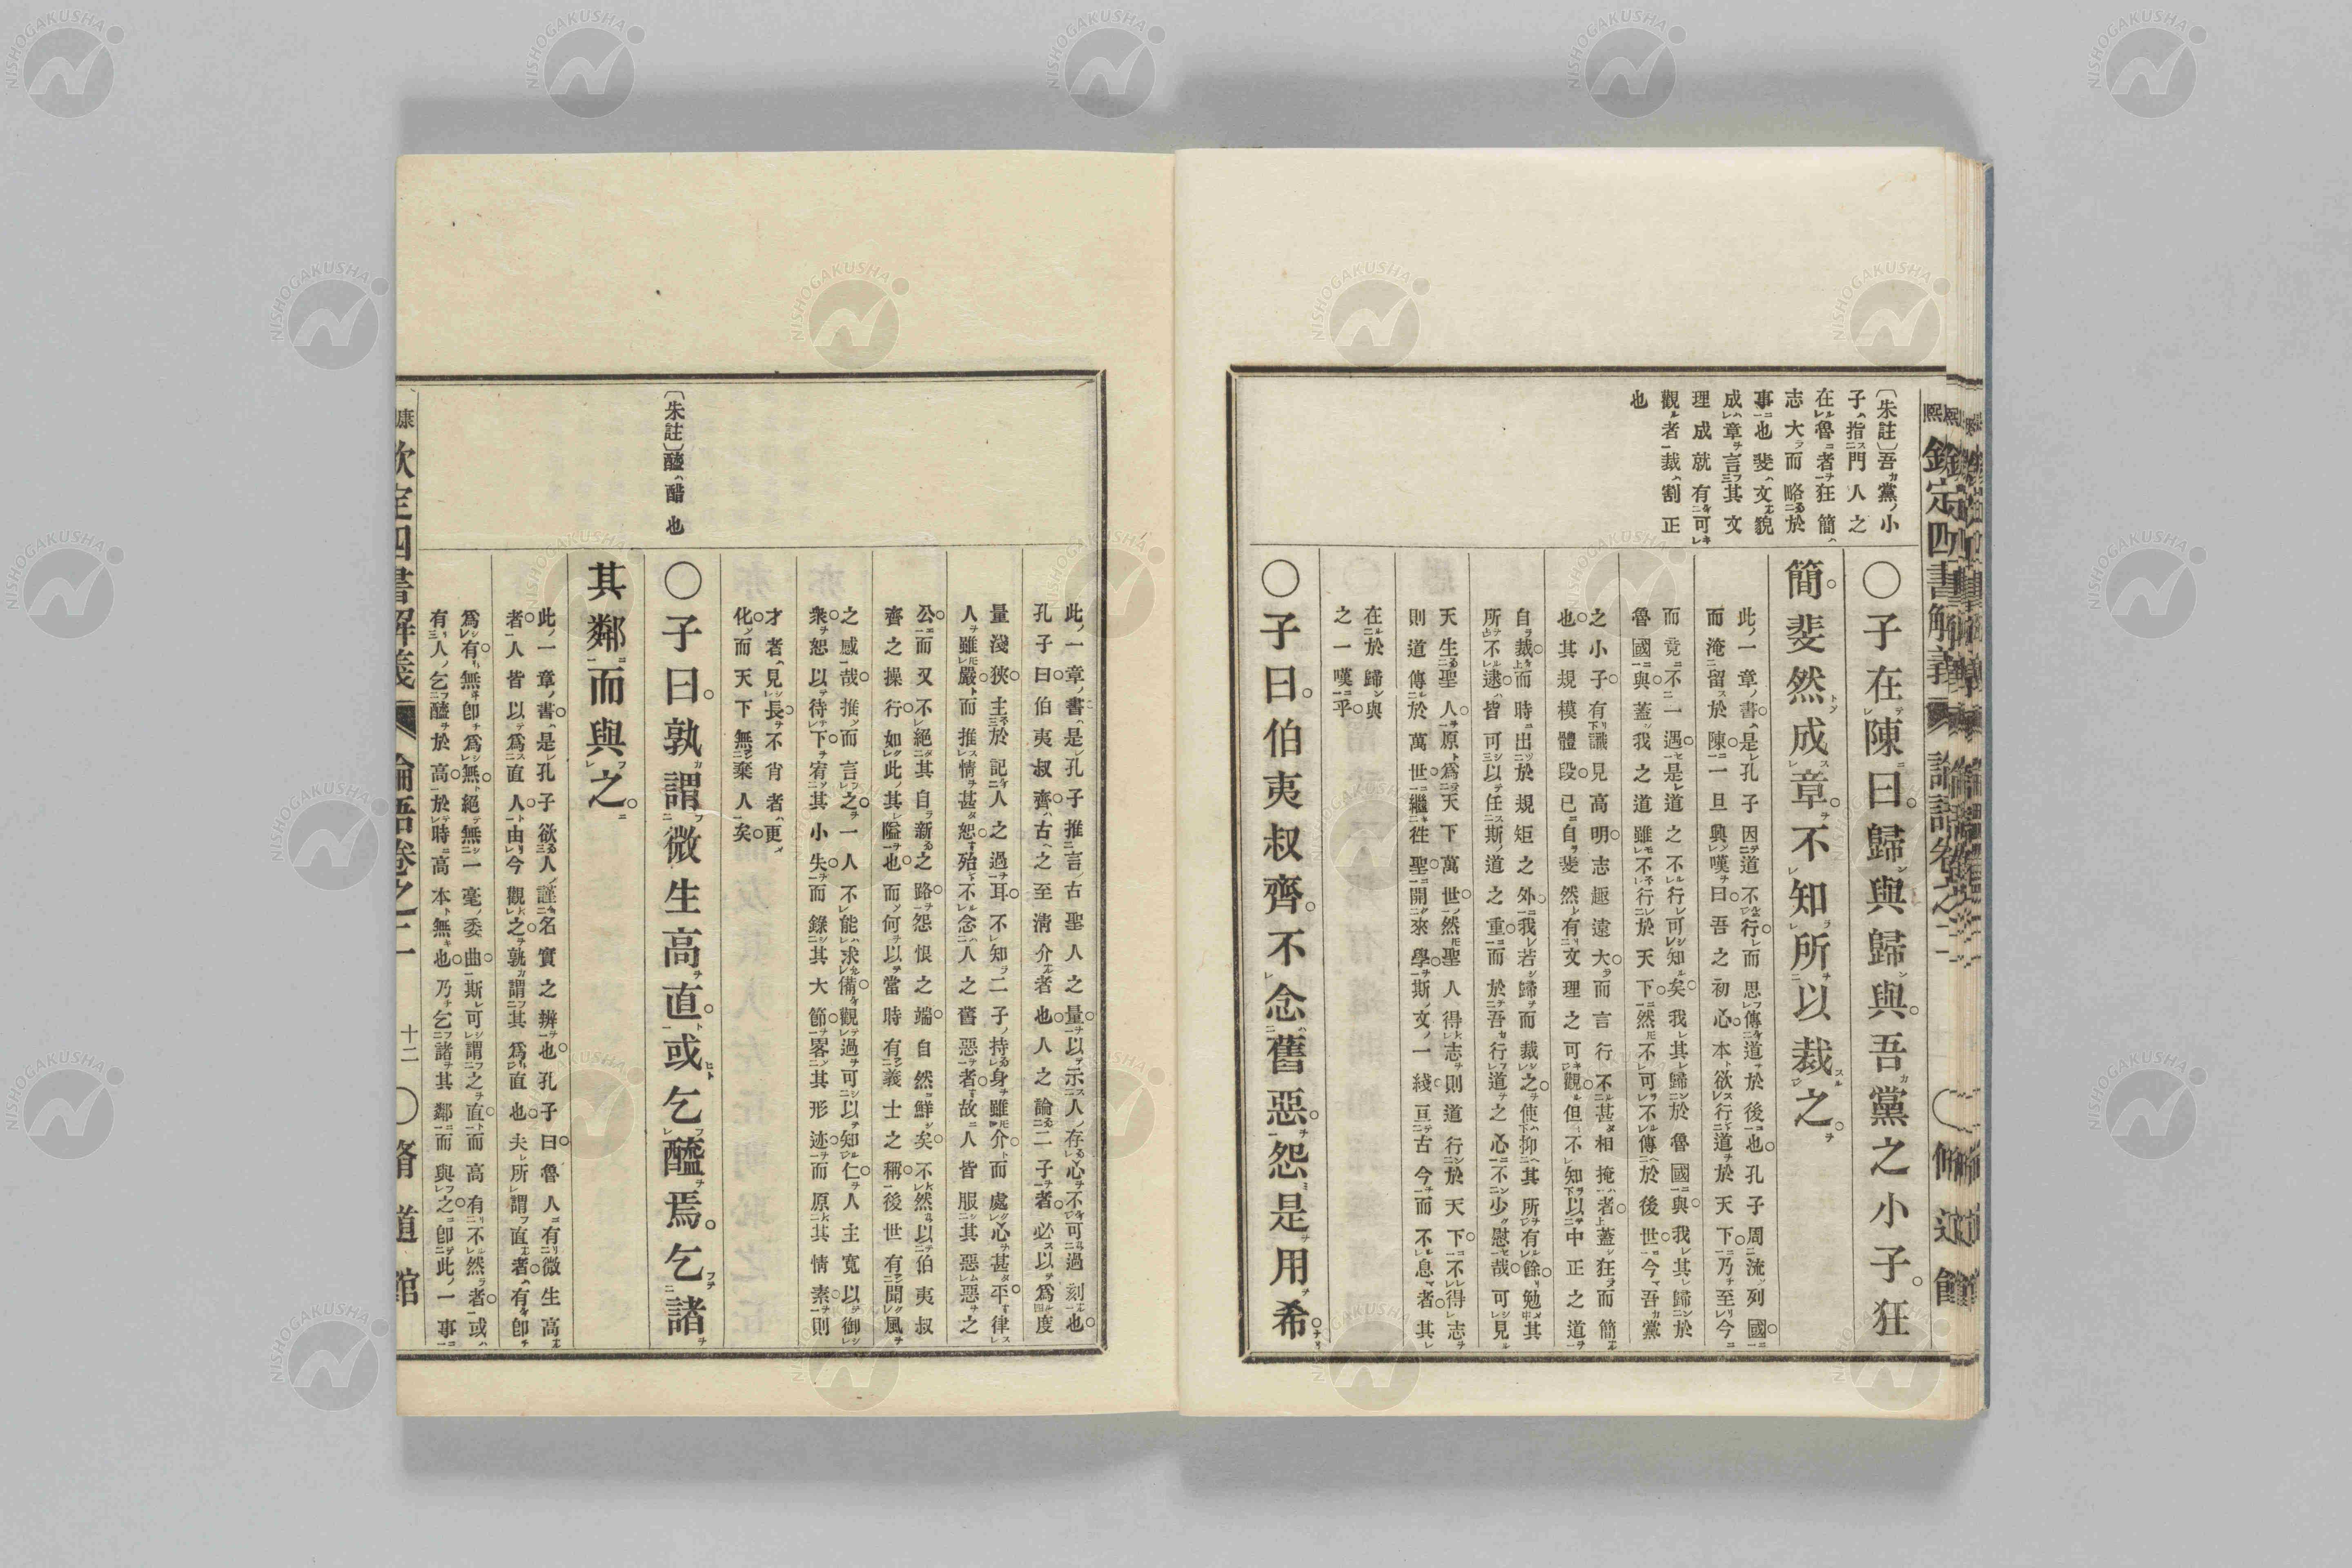 欽定四書解義
〔朱註〕吾黨ノ小
子ハ指門人之
在魯者狂簡ハ
志大而略於
事也斐ハ文貌
成章言其文
理成就有可
觀者裁ハ割正
也
〇子在陳曰。歸與歸與。吾黨之小子。狂
簡。斐然成章。不知所以裁之。
此一章ノ書。是孔子因道不行。而思傳道於後也。孔子周流列國。
而淹留於陳。一旦興嘆曰。吾之初心。本欲行道於天下。乃至今
而竟不一遇。是道之不行。可知矣。我其歸於魯國與。我其歸於
魯國與。蓋我之道雖不行於天下。然不可不傳於後世。今吾黨
之小子。有識見高明。志趣遠大。而言行不甚相掩者。蓋狂而簡
也。其規模體段。已自斐然有文理之可觀。但不知以中正之道
自裁。而時出於規矩之外。我若歸而裁之。使抑其所有餘。勉其
所不逮。皆可以任斯道之重。而於吾行道之心。不少慰哉。可見
天生聖人。原爲天下萬世。然聖人得志則道行於天下。不得志
則道傳於萬世。繼徃聖。開來學。斯文ノ一綫。亘古今而不息者。其
在於歸與
之一嘆乎。
〇子曰。伯夷叔齊。不念舊惡。怨是用希。
此一章ノ書。是孔子推言古聖人之量。以示人存心不可過刻也。
孔子曰。伯夷叔齊。古之至清介者也。人之論二子者。必以爲度
量淺狹。主於記人之過耳。不知二子ノ持身雖介。而處心甚平。律
人雖嚴。而推情甚恕。殆不念人之舊惡者。故人皆服其惡惡之
公。而又不絕其自新之路。怨恨之端。自然鮮矣。不然以伯夷叔
齊之操行。如此其隘也。而何以當時有義士之稱。後世有聞風
之感哉。推而言之。一人不能求備。觀過可以知仁。人主寬以御
衆。恕以待下。宥其小失。而錄其大節。畧其形迹。而原其情素。則
才者見長。不肖者更
化。而天下無棄人矣。
〔朱註〕醯ハ醋也
〇子曰。孰謂微生高直。或乞醯焉。乞諸
其鄰而與之。
此一章ノ書。是孔子欲人ノ謹名實之辨也。孔子曰。魯人有微生高
者。人皆以爲直人。由今觀之。孰謂其爲直也。夫所謂直者。有卽
爲有。無卽爲無。絕無一毫ノ委曲。斯可謂之直。而高有不然者。或
有人ノ乞醯於高。於時高本無也。乃乞諸其鄰而與之。卽此ノ一事
欽定四書解義 論語卷之二 十二 〇脩道館